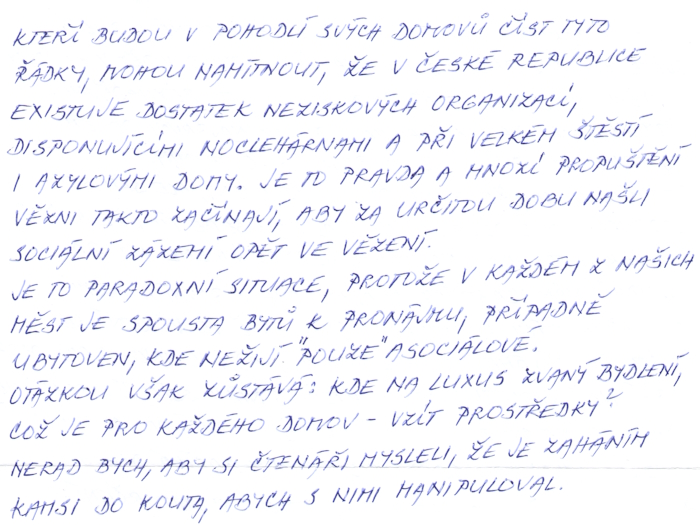 KTEŘÍ BUDOU V POHODLÍ SVÝCH DOMOVŮ ČÍST TYTO
ŘÁDKY, MOHOU NAMÍTNOUT, ŽE V ČESKÉ REPUBLICE
EXISTUJE DOSTATEK NEZISKOVÝCH ORGANIZACÍ,
DISPONUJÍCÍMI NOCLEHÁRNAMI A PŘI VELKÉM ŠTĚSTÍ
I AZYLOVÝMI DOMY. JE TO PRAVDA A MNOZÍ PROPUŠTĚNÍ
VĚZNI TAKTO ZAČÍNAJÍ, ABY ZA URČITOU DOBU NAŠLI
SOCIÁLNÍ ZÁZEMÍ OPĚT VE VĚZENÍ.
JE TO PARADOXNÍ SITUACE, PROTOŽE V KAŽDÉM Z NAŠICH
MĚST JE SPOUSTA BYTŮ K PRONÁJMU, PŘÍPADNĚ
UBYTOVEN, KDE NEŽIJÍ "POUZE" ASOCIÁLOVÉ.
OTÁZKOU VŠAK ZŮSTÁVÁ: KDE NA LUXUS ZVANÝ BYDLENÍ,
COŽ JE PRO KAŽDÉHO DOMOV - VZÍT PROSTŘEDKY?
NERAD BYCH, ABY SI ČTENÁŘI MYSLELI, ŽE JE ZAHÁNÍM
KAMSI DO KOUTA, ABYCH S NIMI MANIPULOVAL.